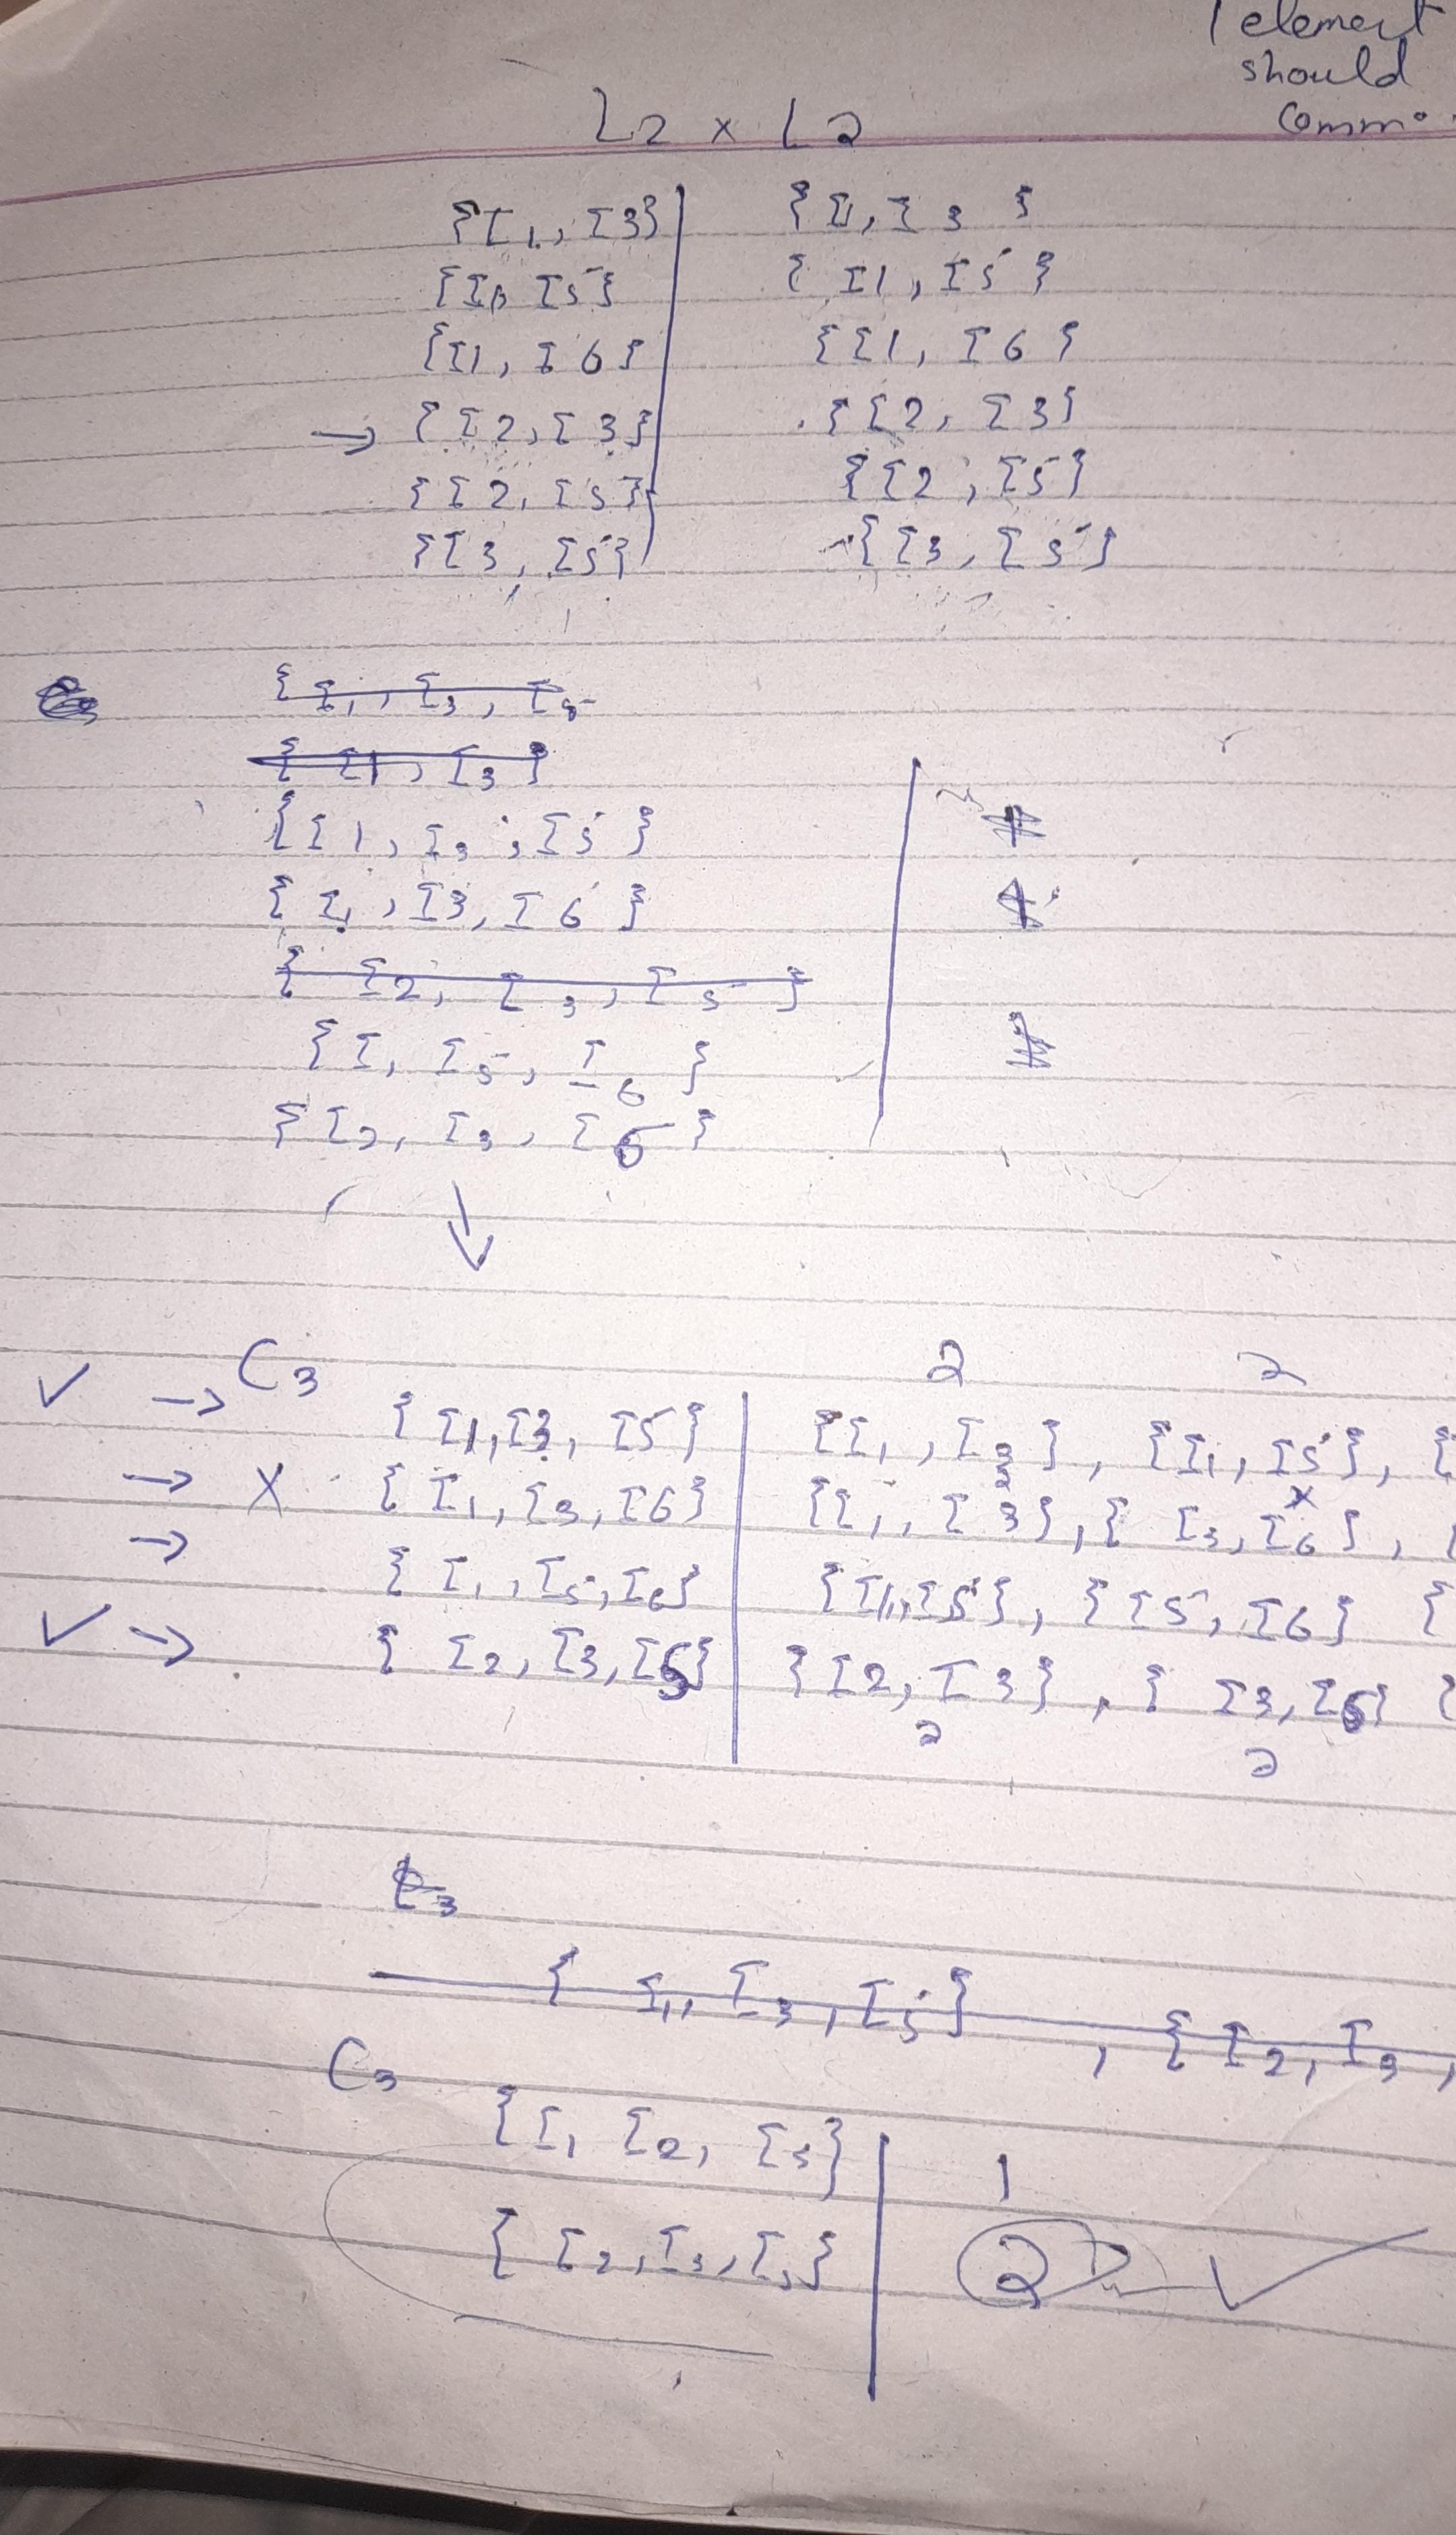 1 element
should
commo
L2 x L2
{I1, I3} {I1, I3}
{I1, I5} {I1, I5}
{I1, I6} {I1, I6}
→ {I2, I3} {I2, I3}
{I2, I5} {I2, I5}
{I3, I5} {I3, I5}
{I1, I3, I5
{I1, I3}
{I1, I3, I5}
{I1, I3, I6}
{I2, I3, I5}
{I1 I5, I6}
{I2, I3, I5}
↓
✓ → C3 2 2
{I1, I3, I5} {I1, I3}, {I1, I5}, {
→ X {I1, I3, I6} {I1, I3}, {I3, I6},
→ {I1, I5, I6} {I1, I5}, {I5, I6} {
✓ → {I2, I3, I5} {I2, I3}, {I3, I5} {
2 2
{I1, I3, I5}, {I2, I3,
C3
{I1 I2, I5} 1
{I2, I3, I5} 2 ✓